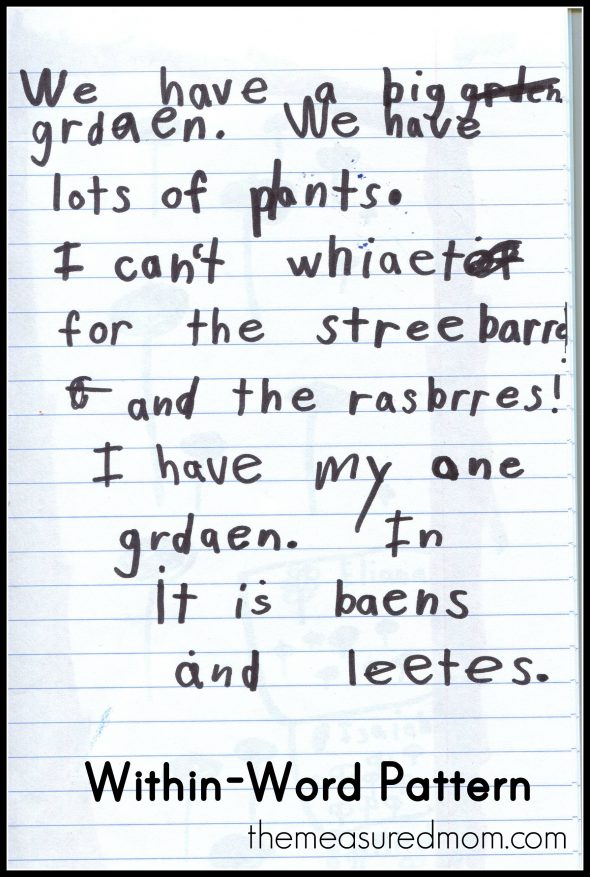 We have a big
grdaen. We have
lots of plants.
I can't whiaet
for the streebarrd
and the rasbrres!
I have my one
grdaen. In
it is baens
and leetes.
Within-Word Pattern
themeasuredmom.com